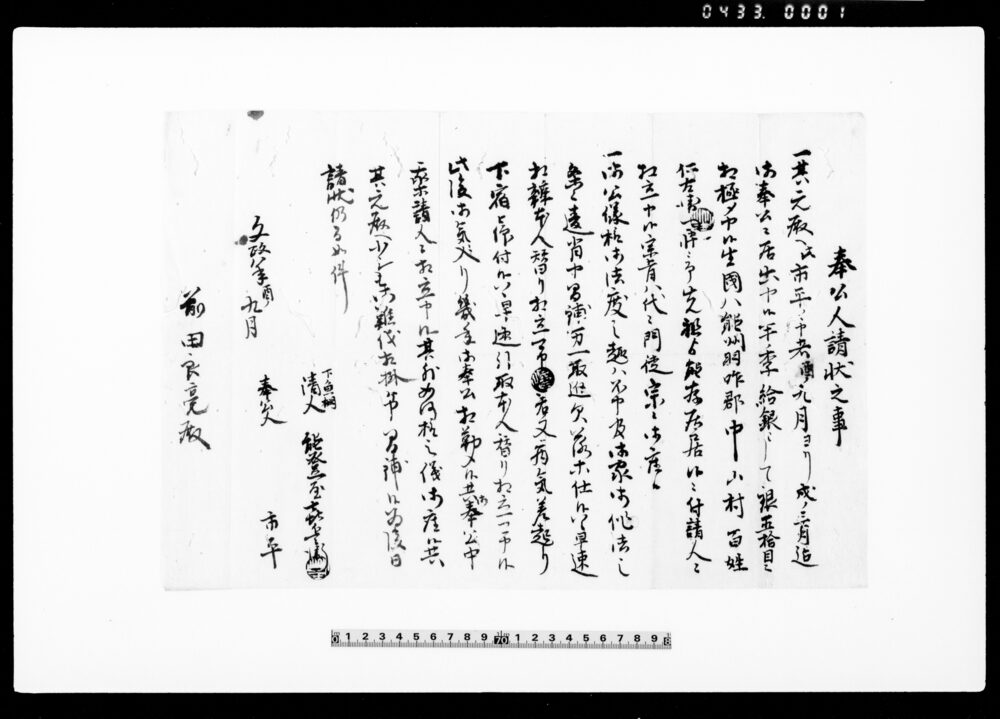 0433.0001
奉公人請状之事
一其元殿へ此市平ト申者当九月ヨリ戌ノ三月迄
御奉公ニ居出申候半季給銀として銀五拾目ニ
相極メ申候生國ハ能州羽咋郡中山村百姓
仁右衛門 先祖ゟ能存居候ニ付請人ニ
相立申候宗旨ハ代々門徒宗ニ御座候
一御公儀様御法度之趣ハ不申及御家御作法之
違背申間鋪万一取逃欠落等仕候ハヽ早速
相辨本人替り相立可 若又病気差起り
下宿被仰付候ハヽ早速引取本人替り相立可申候
此後御気入り幾年御奉公相勤メ候共御奉公中
我等請人ニ相立申候其外如何様之儀御座候共
其元殿へ少も御難儀相掛申間鋪候為後日
請状仍而如件
文政八年酉九月
奉公人 市平
下魚町
請人 能登屋
前田良亮殿
0 1 2 3 4 5 6 7 8 9 70 1 2 3 4 5 6 7 8 9 8